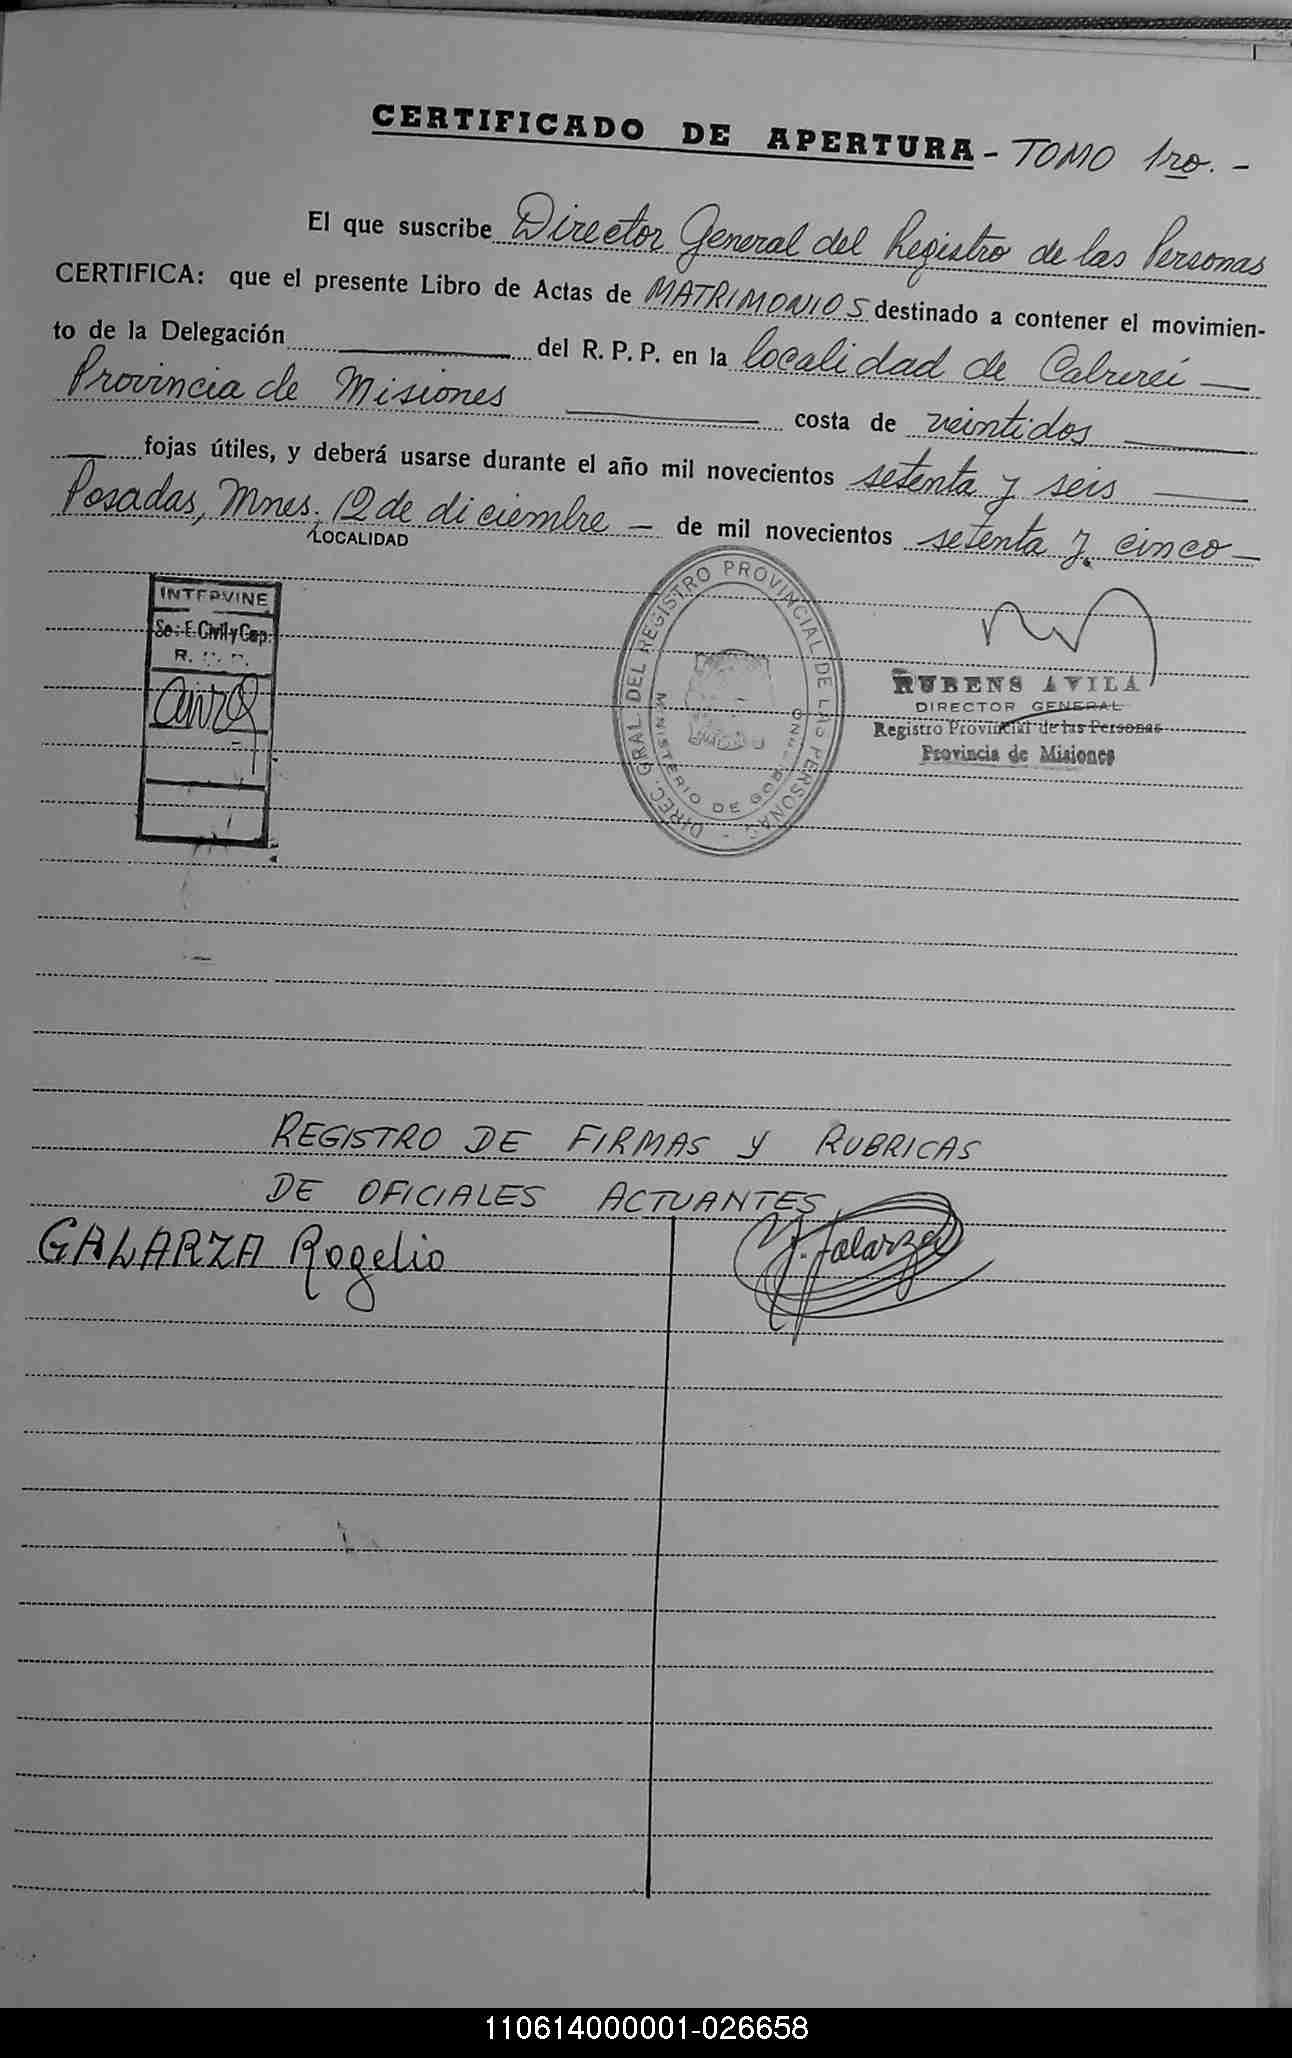 CERTIFICADO DE APERTURA - TOMO 1ro. -
El que suscribe Director General del Registro de las Personas
CERTIFICA: que el presente Libro de Actas de MATRIMONIOS destinado a contener el movimien-
to de la Delegación del R. P. P. en la localidad de Cabureí
Provincia de Misiones costa de veintidos
fojas útiles, y deberá usarse durante el año mil novecientos setenta y seis
Posadas, Mnes. 12 de diciembre - de mil novecientos setenta y cinco
LOCALIDAD
INTERVINE
Sec. E. Civil y Cap.
R. P. P.
DIREC. GRAL. DEL REGISTRO PROVINCIAL DE LAS PERSONAS -
MINISTERIO DE GOBIERNO
RUBENS AVILA
DIRECTOR GENERAL
Registro Provincial de las Personas
Provincia de Misiones
REGISTRO DE FIRMAS Y RUBRICAS
DE OFICIALES ACTUANTES
GALARZA Rogelio
Galarza
110614000001-026658